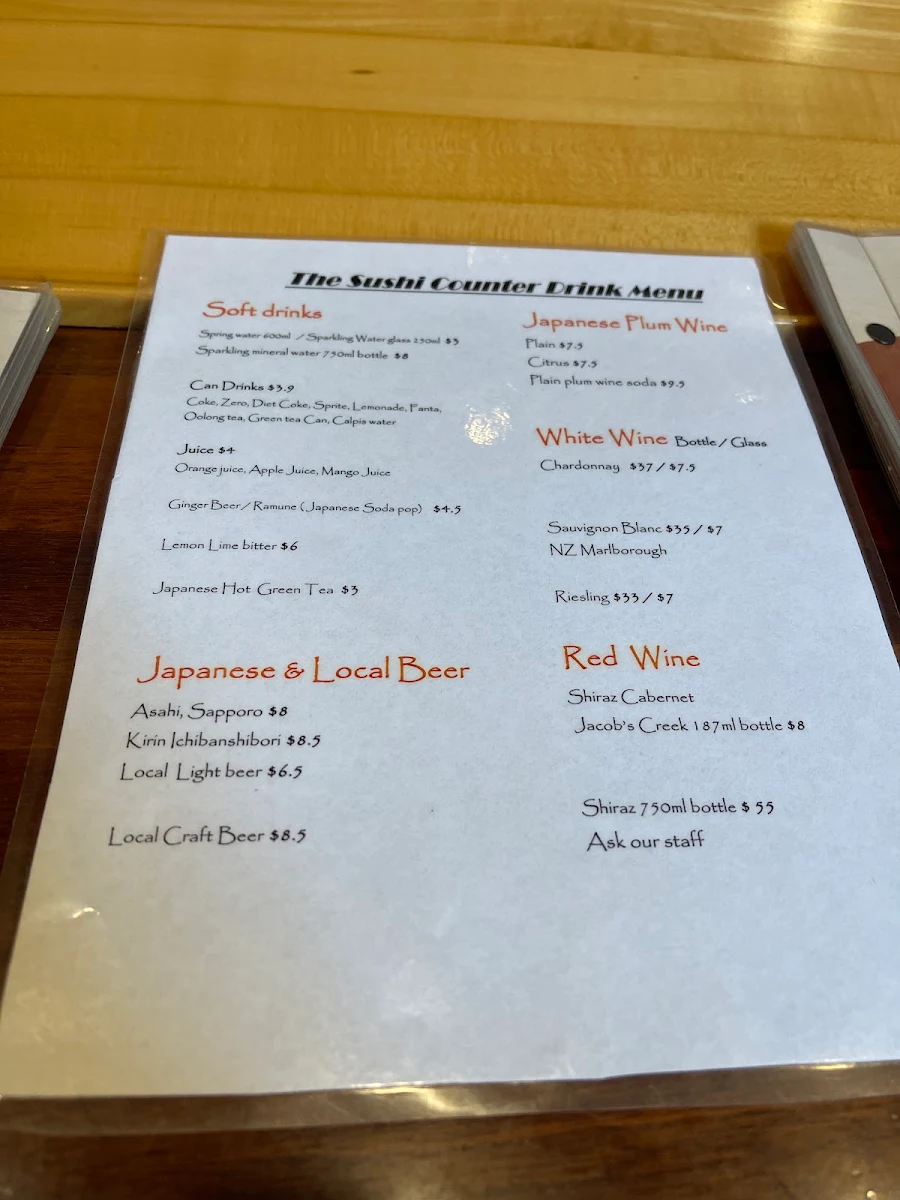 The Sushi Counter Drink Menu
Soft drinks
Spring water 600ml / Sparkling Water glass 250ml $3
Sparkling mineral water 750ml bottle $8
Can Drinks $3.9
Coke, Zero, Diet Coke, Sprite, Lemonade, Fanta,
Oolong tea, Green tea Can, Calpis water
Juice $4
Orange juice, Apple Juice, Mango Juice
Ginger Beer / Ramune (Japanese Soda pop) $4.5
Lemon Lime bitter $6
Japanese Hot Green Tea $3
Japanese & Local Beer
Asahi, Sapporo $8
Kirin Ichibanshibori $8.5
Local Light beer $6.5
Local Craft Beer $8.5
Japanese Plum Wine
Plain $7.5
Citrus $7.5
Plain plum wine soda $9.5
White Wine Bottle / Glass
Chardonnay $37 / $7.5
Sauvignon Blanc $35 / $7
NZ Marlborough
Riesling $33 / $7
Red Wine
Shiraz Cabernet
Jacob's Creek 187ml bottle $8
Shiraz 750ml bottle $ 55
Ask our staff